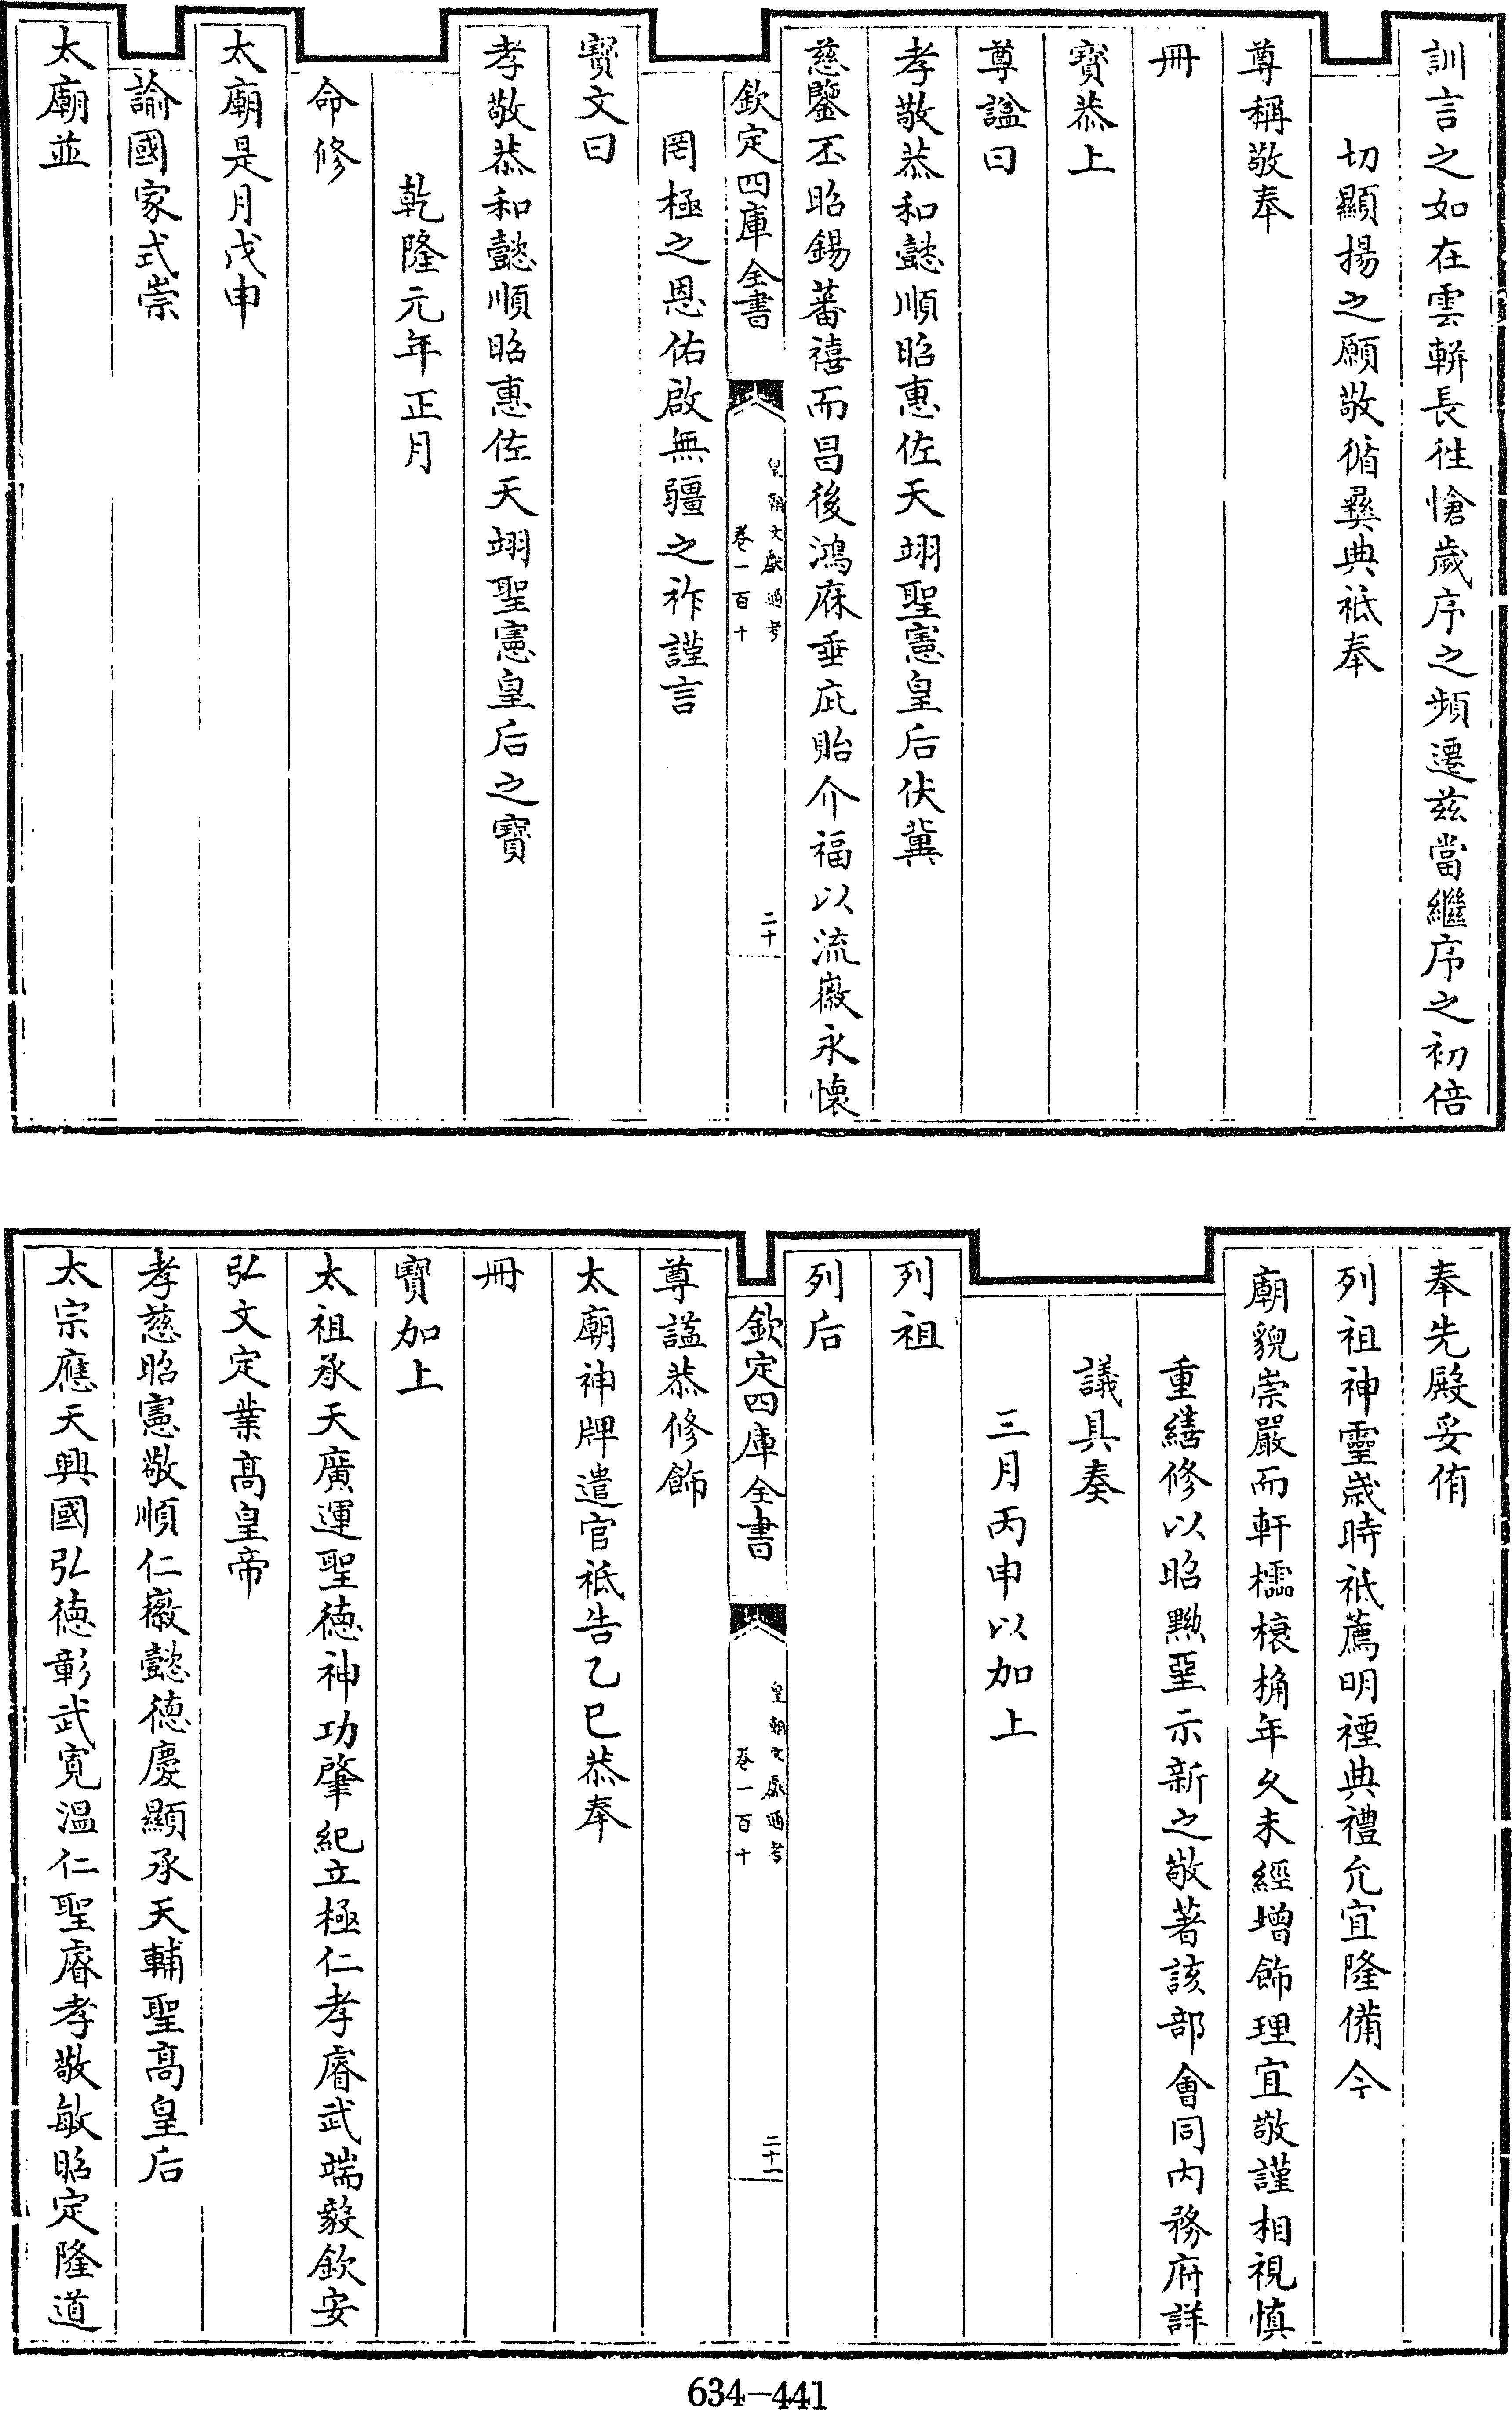 訓言之如在雲軿長徃愴歲序之頻遷兹當繼序之初倍
切顯揚之願敬循彛典祗奉
尊稱敬奉
冊
寳恭上
尊諡曰
孝敬恭和懿順昭惠佐天翊聖憲皇后伏冀
慈鑒丕昭錫蕃禧而昌後鴻庥垂庇貽介福以流徽永懷
欽定四庫全書
皇朝文獻通考
卷一百十
二十
罔極之恩佑啟無疆之祚謹言
寳文曰
孝敬恭和懿順昭惠佐天翊聖憲皇后之寳
乾隆元年正月
命修
太廟是月戊申
諭國家式崇
太廟並
奉先殿妥侑
列祖神靈歲時祗薦明禋典禮允宜隆備今
廟貌崇嚴而軒櫺榱桷年久未經增飾理宜敬謹相視慎
重繕修以昭黝堊示新之敬著該部會同内務府詳
議具奏
三月丙申以加上
列祖
列后
欽定四庫全書
皇朝文獻通考
卷一百十
二十一
尊諡恭修飾
太廟神牌遣官祗告乙巳恭奉
冊
寳加上
太祖承天廣運聖德神功肇紀立極仁孝睿武端毅欽安
弘文定業髙皇帝
孝慈昭憲敬順仁徽懿德慶顯承天輔聖髙皇后
太宗應天興國弘德彰武寛温仁聖睿孝敬敏昭定隆道
634-441